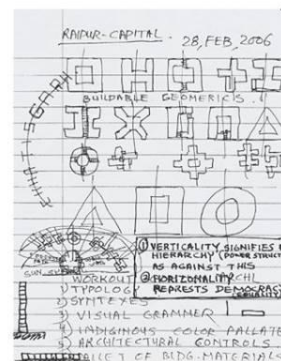 RAIPUR-CAPITAL. 28, FEB, 2006
CHHATTISGARH
BUILDABLE GEOMERICIS.
① VERTICALITY SIGNIFIES
HIERARCHY (POWER STRUCT
AS AGAINST THIS
② HORIZONALITY
REPRESTS DEMOCRACY
(EQUALITY)
WORKOUT
1) TYPOLOGY
2) SYNTEXES
3) VISUAL GRAMMER
4) INDIGINOUS COLOR PALLATE
5) ARCHITECTURAL CONTROLS
OF BLDG. MATERIALS